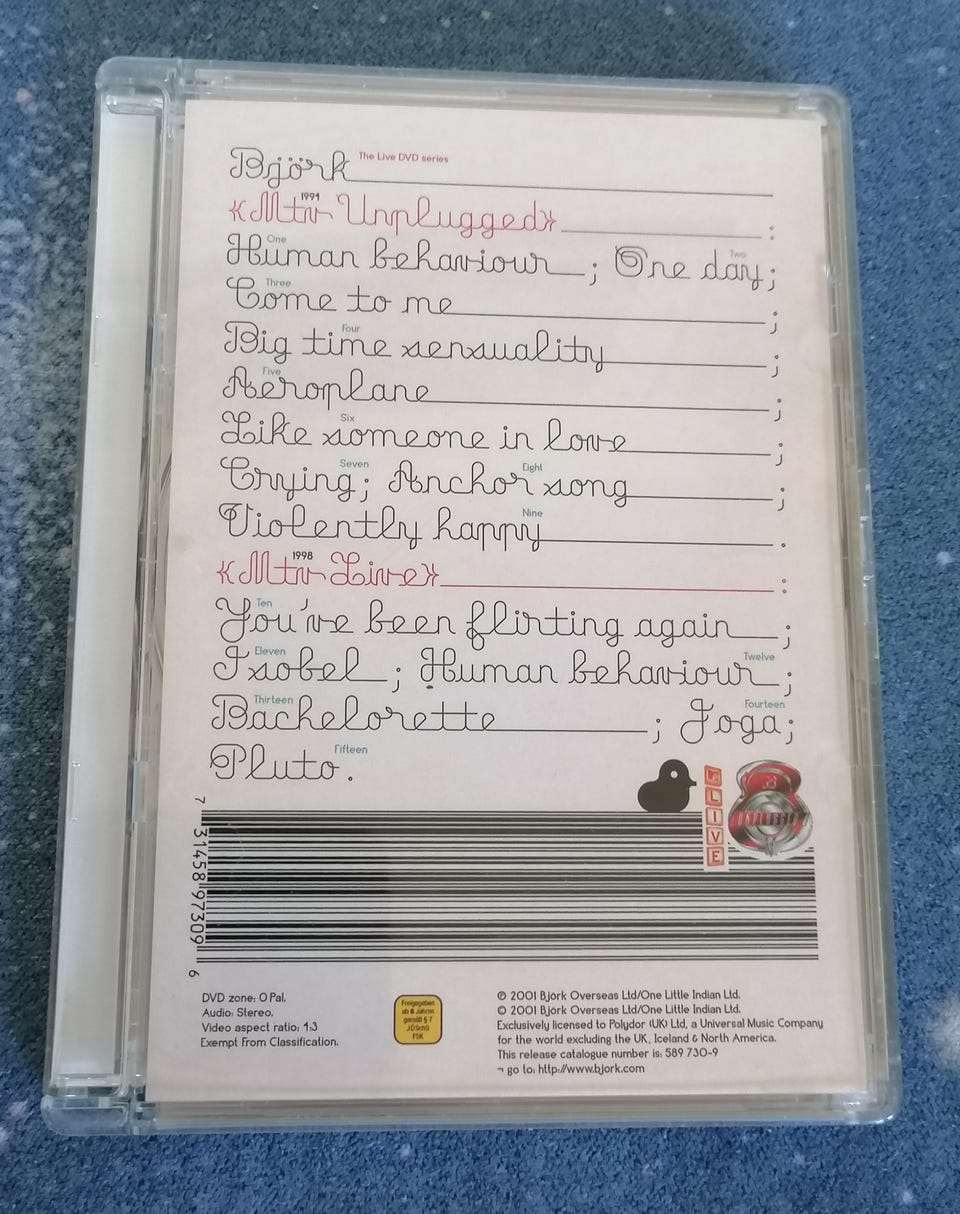 Björk The Live DVD series
1994
«Mtv Unplugged» :
One Two
Human behaviour ; One day;
Three
Come to me ;
Four
Big time sensuality ;
Five
Aeroplane ;
Six
Like someone in love ;
Seven Eight
Crying; Anchor song ;
Nine
Violently happy .
1998
«Mtv Live» :
Ten
You've been flirting again ;
Eleven Twelve
Isobel ; Human behaviour ;
Thirteen Fourteen
Bachelorette ; Joga;
Fifteen
Pluto.
LIVE
UNPLUGGED
7 31458 97309 6
DVD zone: 0 Pal.
Audio: Stereo.
Video aspect ratio: 4:3
Exempt From Classification.
Freigegeben
ab 6 Jahren
gemäß § 7
JÖSchG
FSK
℗ 2001 Björk Overseas Ltd/One Little Indian Ltd.
© 2001 Björk Overseas Ltd/One Little Indian Ltd.
Exclusively licensed to Polydor (UK) Ltd, a Universal Music Company
for the world excluding the UK, Iceland & North America.
This release catalogue number is: 589 730-9
¬ go to: http://www.bjork.com